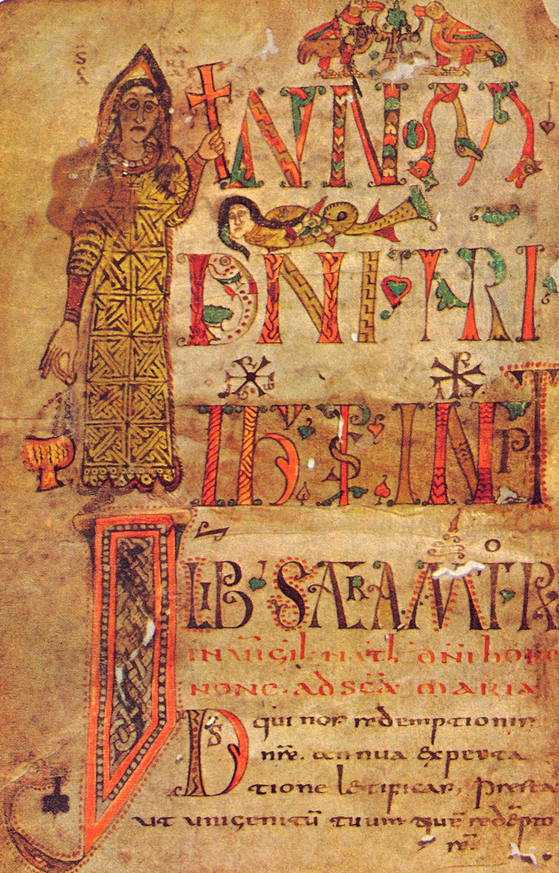 INNOM
DNI HRI
LIB SAERAMT R
IN VIGIL NATL DNI HORA
NONE · AD SCA MARIA
DS qui nos redemptionis
nre. annua expecta
tione letificas, presta
ut unigenitū tuum quē redēpto
rē